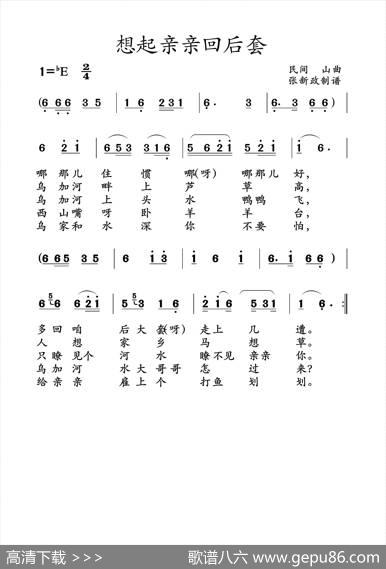 想起亲亲回后套
1=♭E 2/4
民间 山曲
张新政制谱
(6 6 6 3 5 | 1 6 2 3 1 | 6· 3 | 6· 3 6 6) |
6 2 1 | 6 5 3 3 1 6 | 5 6 2 1 5 | 1 6· |
哪 那儿 住 惯 哪(呀) 哪那儿 好,
乌 加河 畔 上 芦 草 高,
乌 加河 上 头 水 鸭鸭 飞,
西 山嘴 呀 卧 羊 羊 台,
乌 家和 水 深 你 不要 怕,
(6 6 5 3 5 | 1 6 2 3 1 | 6 6 1 2 | 6· 1 6 6) |
5 6 6 6 2 1 | 5 5 3 1 6 | 2 1 6 5 3 1 | 1 6· :||
多 回 咱 后 大 套(呀) 走 上 几 遭。
人 想 家 乡 马 想 草。
只 瞭 见个 河 水 瞭 不见 亲亲 你。
乌 加 河 水 大 哥哥 怎 过 来?
给 亲亲 雇 上 个 打鱼 划 划。
高清下载 >>>
歌谱八六 www.gepu86.com